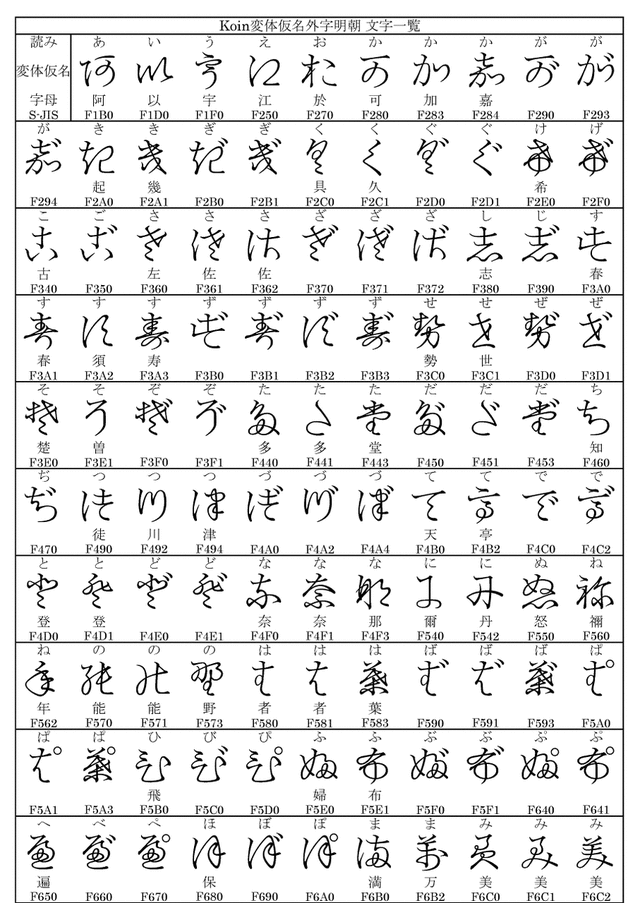 Koin変体仮名外字明朝 文字一覧
読み あ い う え お か か か が が
変体仮名
字母 阿 以 宇 江 於 可 加 嘉
S-JIS F1B0 F1D0 F1F0 F250 F270 F280 F283 F284 F290 F293
が き き ぎ ぎ く く ぐ ぐ け げ
起 幾 具 久 希
F294 F2A0 F2A1 F2B0 F2B1 F2C0 F2C1 F2D0 F2D1 F2E0 F2F0
こ ご さ さ さ ざ ざ ざ し じ す
古 左 佐 佐 志 春
F340 F350 F360 F361 F362 F370 F371 F372 F380 F390 F3A0
す す す ず ず ず ず せ せ ぜ ぜ
春 須 寿 勢 世
F3A1 F3A2 F3A3 F3B0 F3B1 F3B2 F3B3 F3C0 F3C1 F3D0 F3D1
そ そ ぞ ぞ た た た だ だ だ ち
楚 曽 多 多 堂 知
F3E0 F3E1 F3F0 F3F1 F440 F441 F443 F450 F451 F453 F460
ぢ つ つ つ づ づ づ て て で で
徒 川 津 天 亭
F470 F490 F492 F494 F4A0 F4A2 F4A4 F4B0 F4B2 F4C0 F4C2
と と ど ど な な な に に ぬ ね
登 登 奈 奈 那 爾 丹 怒 禰
F4D0 F4D1 F4E0 F4E1 F4F0 F4F1 F4F3 F540 F542 F550 F560
ね の の の は は は ば ば ば ぱ
年 能 能 野 者 者 葉
F562 F570 F571 F573 F580 F581 F583 F590 F591 F593 F5A0
ぱ ぱ ひ び ぴ ふ ふ ぶ ぶ ぷ ぷ
飛 婦 布
F5A1 F5A3 F5B0 F5C0 F5D0 F5E0 F5E1 F5F0 F5F1 F640 F641
へ べ ぺ ほ ぼ ぽ ま ま み み み
遍 保 満 万 美 美 美
F650 F660 F670 F680 F690 F6A0 F6B0 F6B2 F6C0 F6C1 F6C2